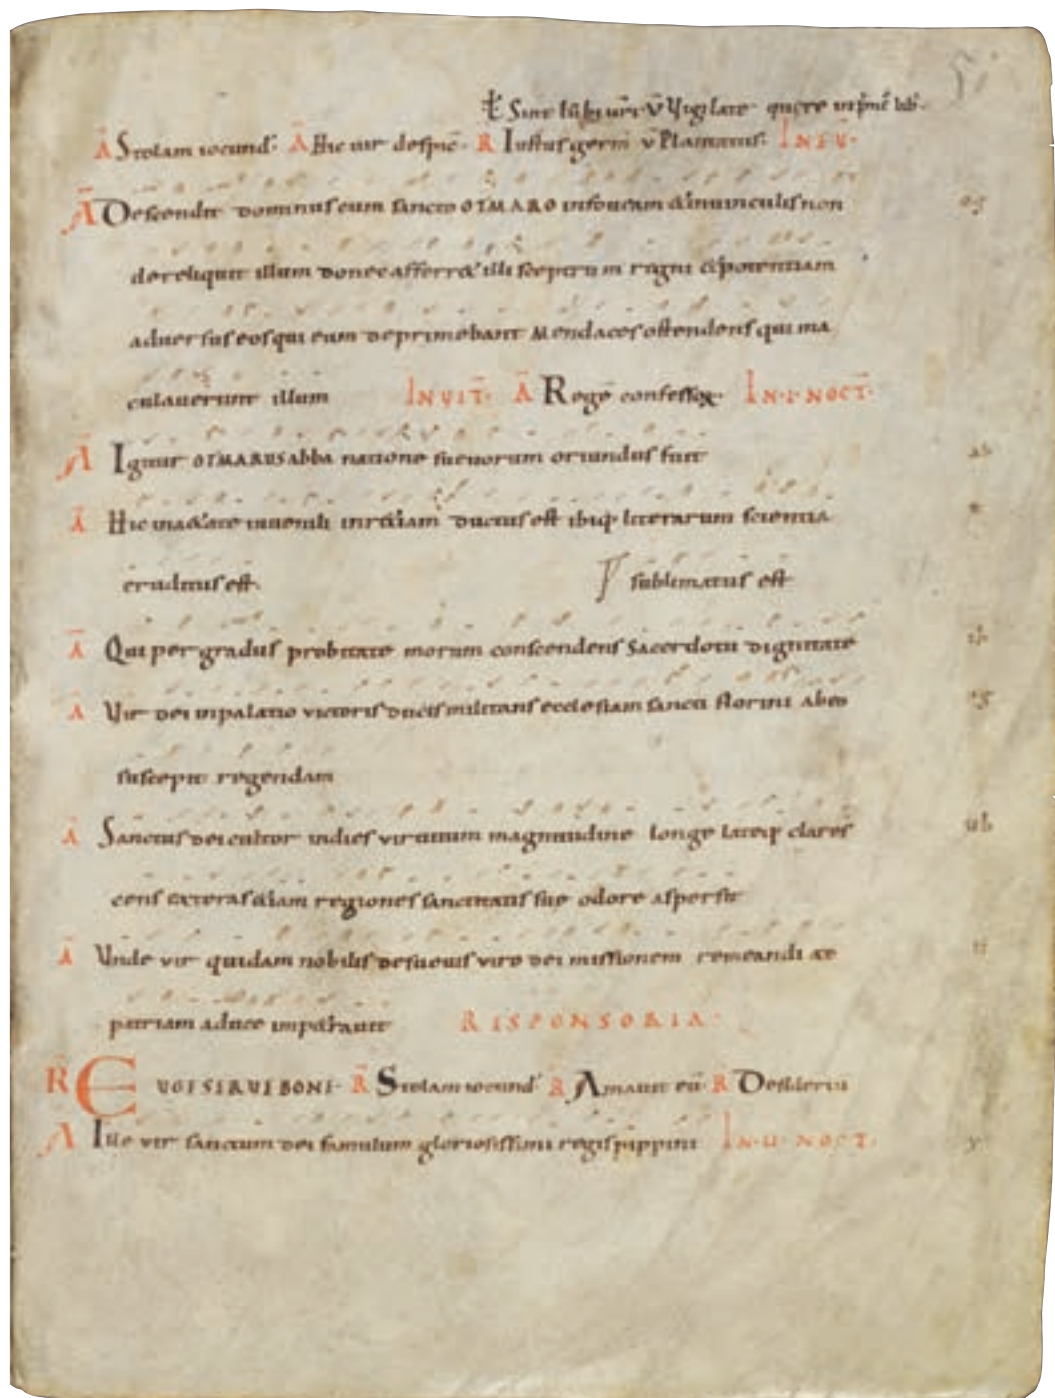 Sint lūbi ur̄i v̄ Vigilate quere in
A Stolam iocund: A Hic uir despic̄ R Iustus germ̄ v̄ Plantatus: IN EV̄
A Descendit dominus cum sancto OTMARO in foueam & in uinculis non
dereliquit illum donec afferr& illi sceptrum regni & potentiam
aduersus eos qui eum deprimebant Mendaces ostendens qui ma
culauerunt illum INVIT̄ A Regē confessoꝝ IN·I·NOCT̄
A Igitur OTMARUS abba natione sueuorum oriundus fuit ab
A Hic in aetate iuuenili in r&iam ductus est ibiq; litterarum scientia
eruditus est. sublimatus est
A Qui per gradus probitate morum conscendens Sacerdotii dignitate
A Vir dei in palatio uictoris ducis militans ecclesiam sancti florini ab eo
suscepit regendam
A Sanctus dei cultor indies uirtutum magnitudine longe lateq; clares
cens exteras &iam regiones sanctitatis sue odore aspersit
A Vnde vir quidam nobilis de sueuis viro dei missionem remeandi ac
patriam a duce imp&rauit RESPONSORIA·
R EUGE SERUE BONE· R Stolam iocund̄ R Amauit eū R Desideriū
A Iste vir sanctum dei famulum gloriosissimi regis pippini IN·II·NOCT· y